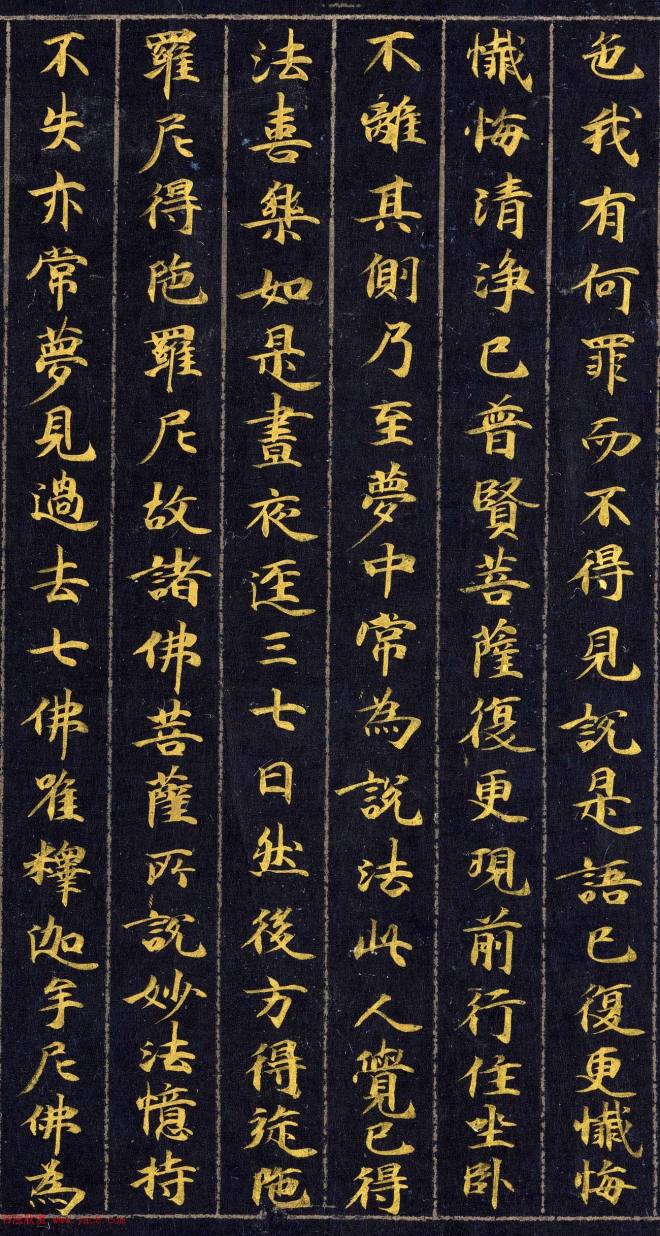 色我有何罪而不得見說是語已復更懺悔
懺悔清淨已普賢菩薩復更現前行住坐卧
不離其側乃至夢中常為說法此人覺已得
法喜樂如是晝夜逕三七日然後方得旋陁
羅尼得陁羅尼故諸佛菩薩所說妙法憶持
不失亦常夢見過去七佛唯釋迦牟尼佛為